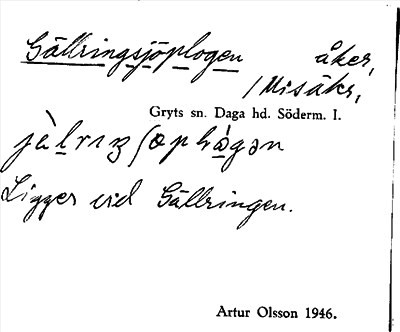 Gällringsjöplogen åker,
/Misäkr,
Gryts sn. Daga hd. Söderm. I.
Ligger vid Gällringen.
Artur Olsson 1946.